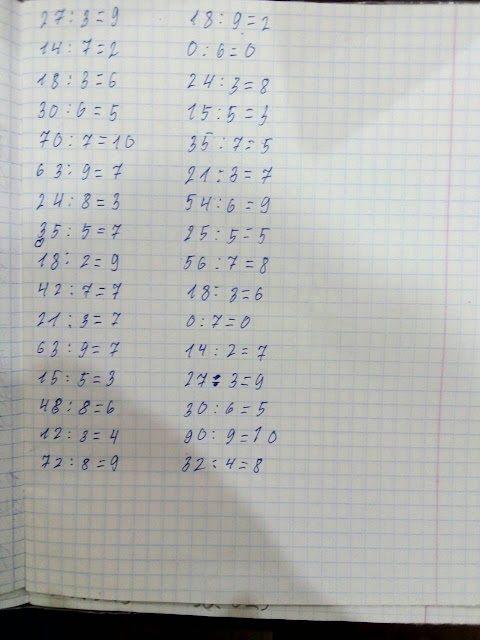 27:3=9 18:9=2
14:7=2 0:6=0
18:3=6 24:3=8
30:6=5 15:5=3
70:7=10 35:7=5
63:9=7 21:3=7
24:8=3 54:6=9
35:5=7 25:5=5
18:2=9 56:7=8
42:7=7 18:3=6
21:3=7 0:7=0
63:9=7 14:2=7
15:5=3 27:3=9
48:8=6 30:6=5
12:3=4 90:9=10
72:8=9 32:4=8